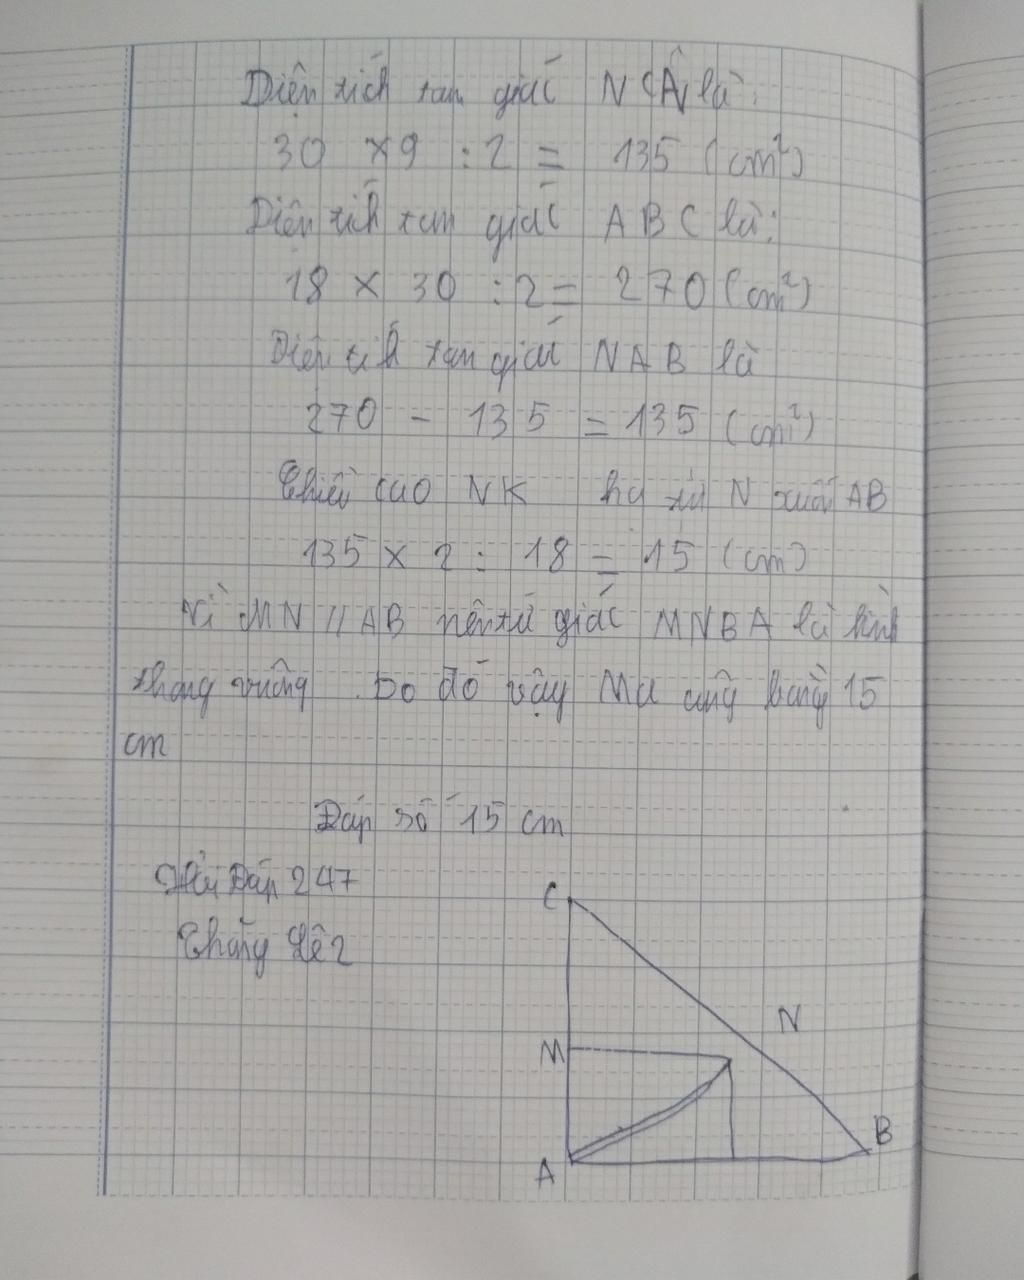 Diện tích tam giác NCA là:
30 × 9 : 2 = 135 (cm²)
Diện tích tam giác ABC là:
18 × 30 : 2 = 270 (cm²)
Diện tích tam giác NAB là
270 - 135 = 135 (cm²)
Chiều cao NK hạ từ N xuống AB
135 × 2 : 18 = 15 (cm)
Vì MN // AB nên tứ giác MNBA là hình
thang vuông. Do đó vậy Ma cũng bằng 15
cm
Đáp số 15 cm
Đáp 247
C
N
M
B
A